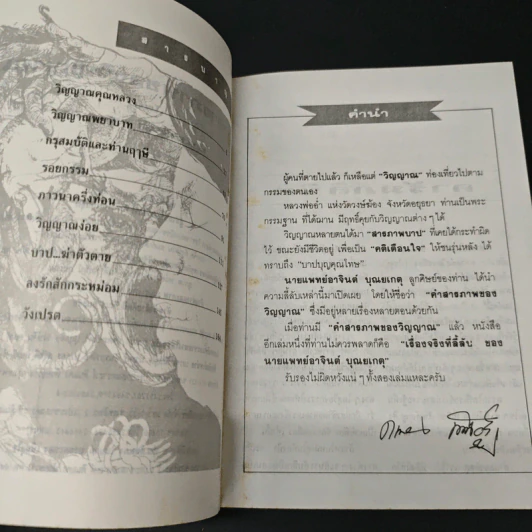 สารบาญ
วิญญาณคุณหลวง
วิญญาณพยาบาท
กรุสมบัติและท่านฤๅษี
รอยกรรม
ภาวนาครึ่งท่อน
วิญญาณง่อย
บาป...ฆ่าตัวตาย
ลงรักสักกระหม่อม
วังเปรต
คำนำ
ผู้คนที่ตายไปแล้ว ก็เหลือแต่ "วิญญาณ" ท่องเที่ยวไปตาม
กรรมของตนเอง
หลวงพ่อฮำ แห่งวัดวงษ์ฆ้อง จังหวัดอยุธยา ท่านเป็นพระ
กรรมฐาน ที่ได้ฌาน มีฤทธิ์คุยกับวิญญาณต่าง ๆ ได้
วิญญาณหลายตนได้มา "สารภาพบาป" ที่เคยได้กระทำผิด
ไว้ ขณะยังมีชีวิตอยู่ เพื่อเป็น "คติเตือนใจ" ให้ชนรุ่นหลัง ได้
ทราบถึง "บาปบุญคุณโทษ"
นายแพทย์อาจินต์ บุณยเกตุ ลูกศิษย์ของท่าน ได้นำ
ความลี้ลับเหล่านี้มาเปิดเผย โดยให้ชื่อว่า "คำสารภาพของ
วิญญาณ" ซึ่งมีอยู่หลายเรื่องหลายตอนด้วยกัน
เมื่อท่านมี "คำสารภาพของวิญญาณ" แล้ว หนังสือ
อีกเล่มหนึ่งที่ท่านไม่ควรพลาดก็คือ "เรื่องจริงที่ลี้ลับ ของ
นายแพทย์อาจินต์ บุณยเกตุ"
รับรองไม่ผิดหวังแน่ ๆ ทั้งสองเล่มแหละครับ